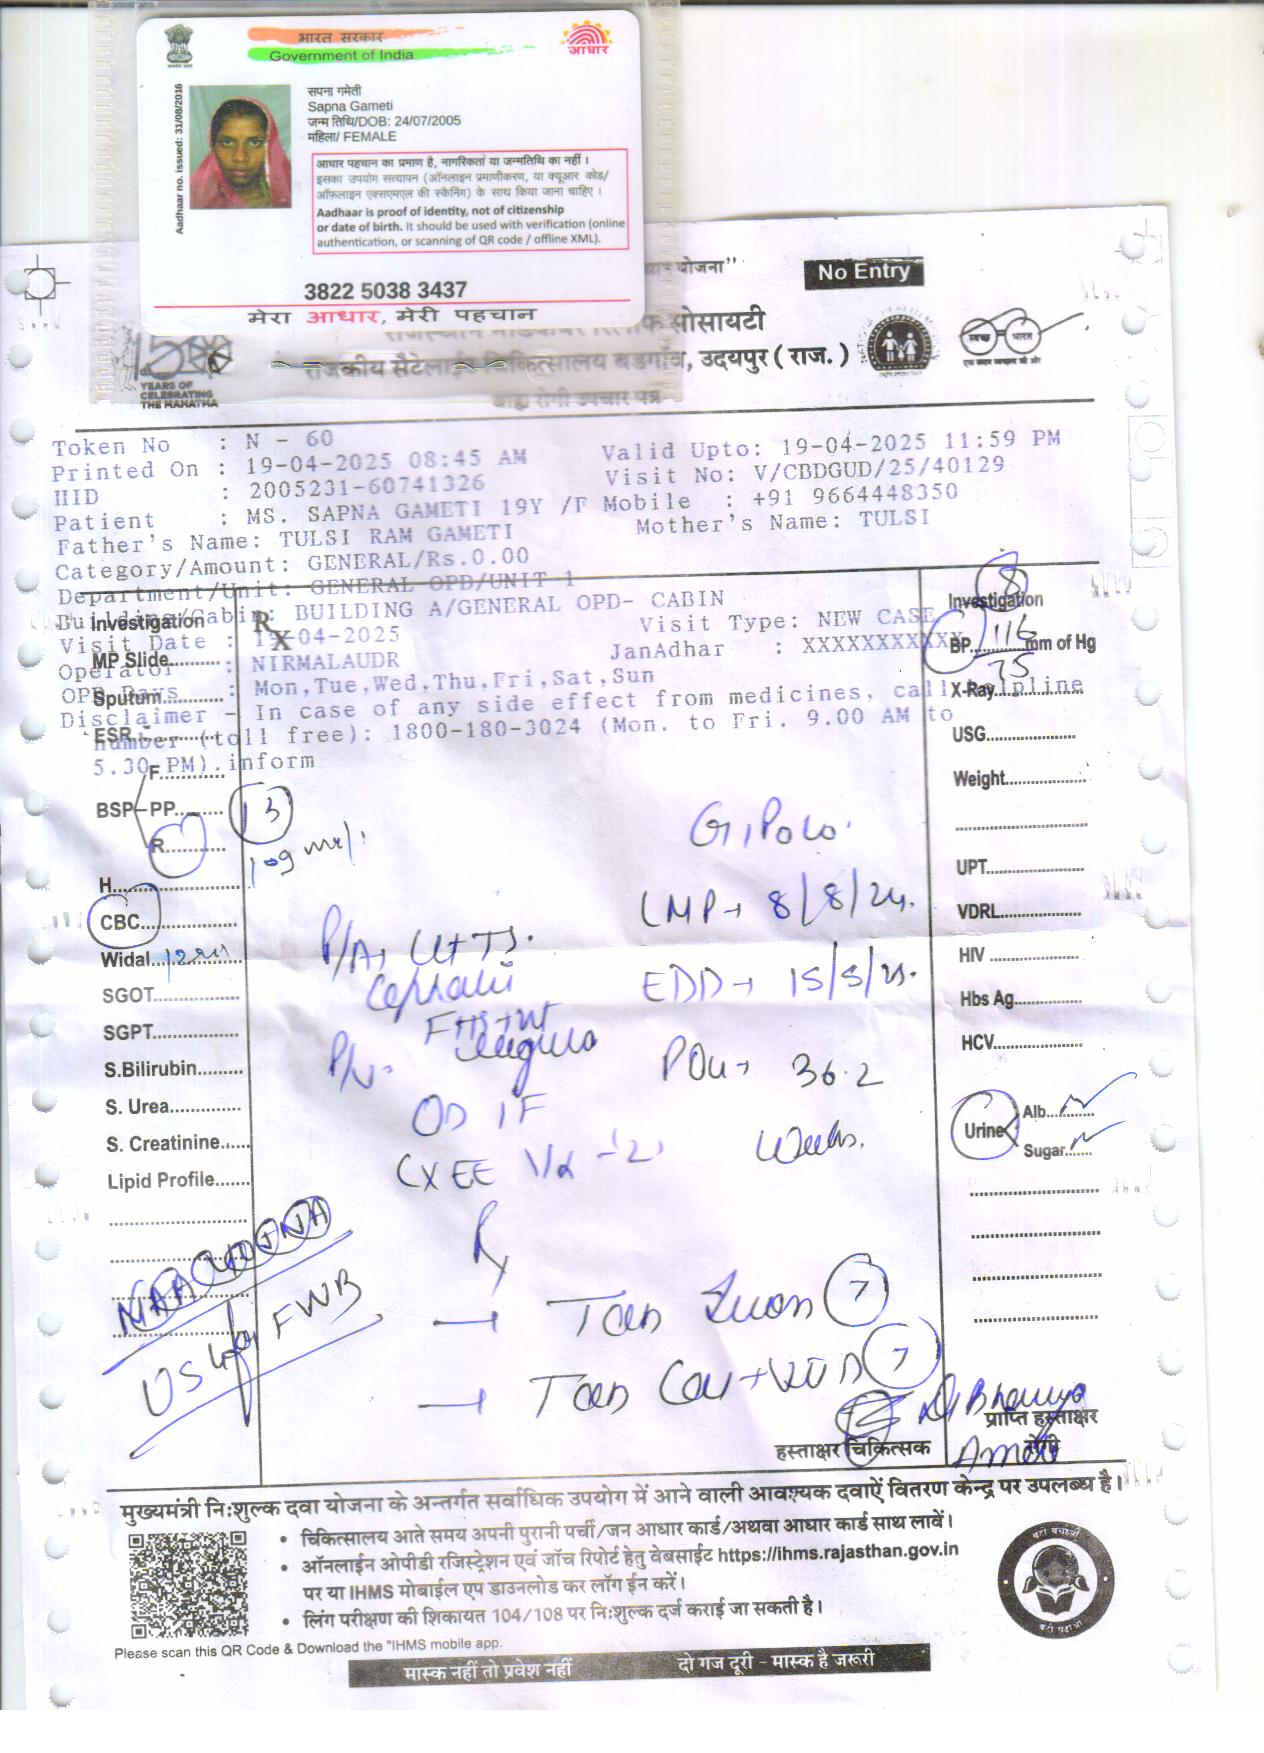 भारत सरकार
Government of India
आधार
Aadhaar no. issued: 31/08/2016
सपना गमेती
Sapna Gameti
जन्म तिथि/DOB: 24/07/2005
महिला/ FEMALE
आधार पहचान का प्रमाण है, नागरिकता या जन्मतिथि का नहीं ।
इसका उपयोग सत्यापन (ऑनलाइन प्रमाणीकरण, या क्यूआर कोड/
ऑफ़लाइन एक्सएमएल की स्कैनिंग) के साथ किया जाना चाहिए ।
Aadhaar is proof of identity, not of citizenship
or date of birth. It should be used with verification (online
authentication, or scanning of QR code / offline XML).
3822 5038 3437
मेरा आधार, मेरी पहचान
योजना”
No Entry
सोसायटी
राजकीय सैटेलाईट चिकित्सालय बडगांव, उदयपुर ( राज. )
YEARS OF
CELEBRATING
THE MAHATMA
स्वच्छ भारत
एक कदम स्वच्छता की ओर
बाह्य रोगी उपचार पत्र
Token No : N - 60
Valid Upto: 19-04-2025 11:59 PM
Printed On : 19-04-2025 08:45 AM
Visit No: V/CBDGUD/25/40129
HID : 2005231-60741326
Mobile : +91 9664448350
Patient : MS. SAPNA GAMETI 19Y /F
Mother's Name: TULSI
Father's Name: TULSI RAM GAMETI
Category/Amount: GENERAL/Rs.0.00
Department/Unit: GENERAL OPD/UNIT 1
Building/Cabin: BUILDING A/GENERAL OPD- CABIN
Visit Type: NEW CASE
Visit Date : 19-04-2025
JanAdhar : XXXXXXXXXXX
Operator : NIRMALAUDR
OPD Days : Mon,Tue,Wed,Thu,Fri,Sat,Sun
Disclaimer - In case of any side effect from medicines, call helpline
number (toll free): 1800-180-3024 (Mon. to Fri. 9.00 AM to
5.30 PM).inform
Investigation
Rx
MP Slide..........
Sputum............
ESR................
BSP
F............
PP.........
R............
13
109 mg/.
H......................
CBC................
Widal....12......
SGOT................
SGPT.................
S.Bilirubin.........
S. Urea..............
S. Creatinine......
Lipid Profile.......
8
Investigation
BP 116/75 mm of Hg
X-Ray................
USG....................
Weight................
UPT....................
VDRL..................
HIV....................
Hbs Ag................
HCV....................
Urine
Alb............
Sugar.......
G1P0L0.
LMP→ 8/8/24.
EDD→ 15/5/25.
POG→ 36.2
Weeks.
P/A, Ut TS.
Cephalic
FHS+nt
P/V-
OS 1F
CX EE
Rx
→ Tab 7
→ Tab 7
USG for FWB
Dr Bhavya
Ameta
हस्ताक्षर चिकित्सक
प्राप्ति हस्ताक्षर
रोगी
मुख्यमंत्री निःशुल्क दवा योजना के अन्तर्गत सर्वाधिक उपयोग में आने वाली आवश्यक दवाऐं वितरण केन्द्र पर उपलब्ध है।
• चिकित्सालय आते समय अपनी पुरानी पर्ची/जन आधार कार्ड/अथवा आधार कार्ड साथ लावें।
• ऑनलाईन ओपीडी रजिस्ट्रेशन एवं जॉच रिपोर्ट हेतु वेबसाईट https://ihms.rajasthan.gov.in
पर या IHMS मोबाईल एप डाउनलोड कर लॉग ईन करें।
• लिंग परीक्षण की शिकायत 104/108 पर निःशुल्क दर्ज कराई जा सकती है।
Please scan this QR Code & Download the "IHMS mobile app.
बेटी बचाओ
बेटी पढ़ाओ
मास्क नहीं तो प्रवेश नहीं
दो गज दूरी - मास्क है जरूरी